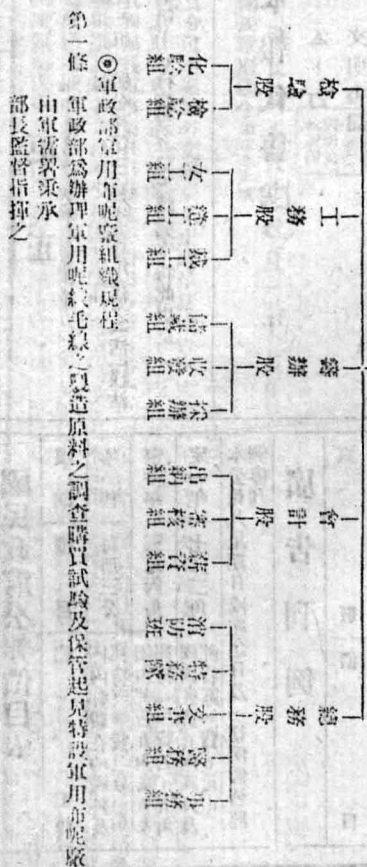 總務股
事務組
醫務組
文書組
特務隊
消防班
會計股
審核組
出納組
籌辦股
採辦組
收發組
儲藏組
工務股
裁工組
縫工組
女工組
檢驗股
檢驗組
化驗組
◎軍政部軍用布呢廠組織規程
第一條 軍政部爲辦理軍用呢絨毛線之製造原料之調查購買試驗及保管起見特設軍用布呢廠
由軍需署秉承
部長監督指揮之